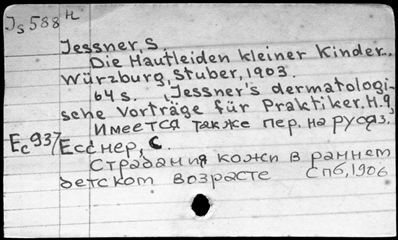 Js 588 н
Jessner, S.
Die Hautleiden kleiner Kinder.
Würzburg, Stuber, 1903.
64 s. Jessner's dermatologi-
sche Vorträge für Praktiker. H. 9,
Имеется также пер. на русяз.
Ес 937/ Есснер, С.
Страдания кожи в раннем
детском возрасте СПб, 1906